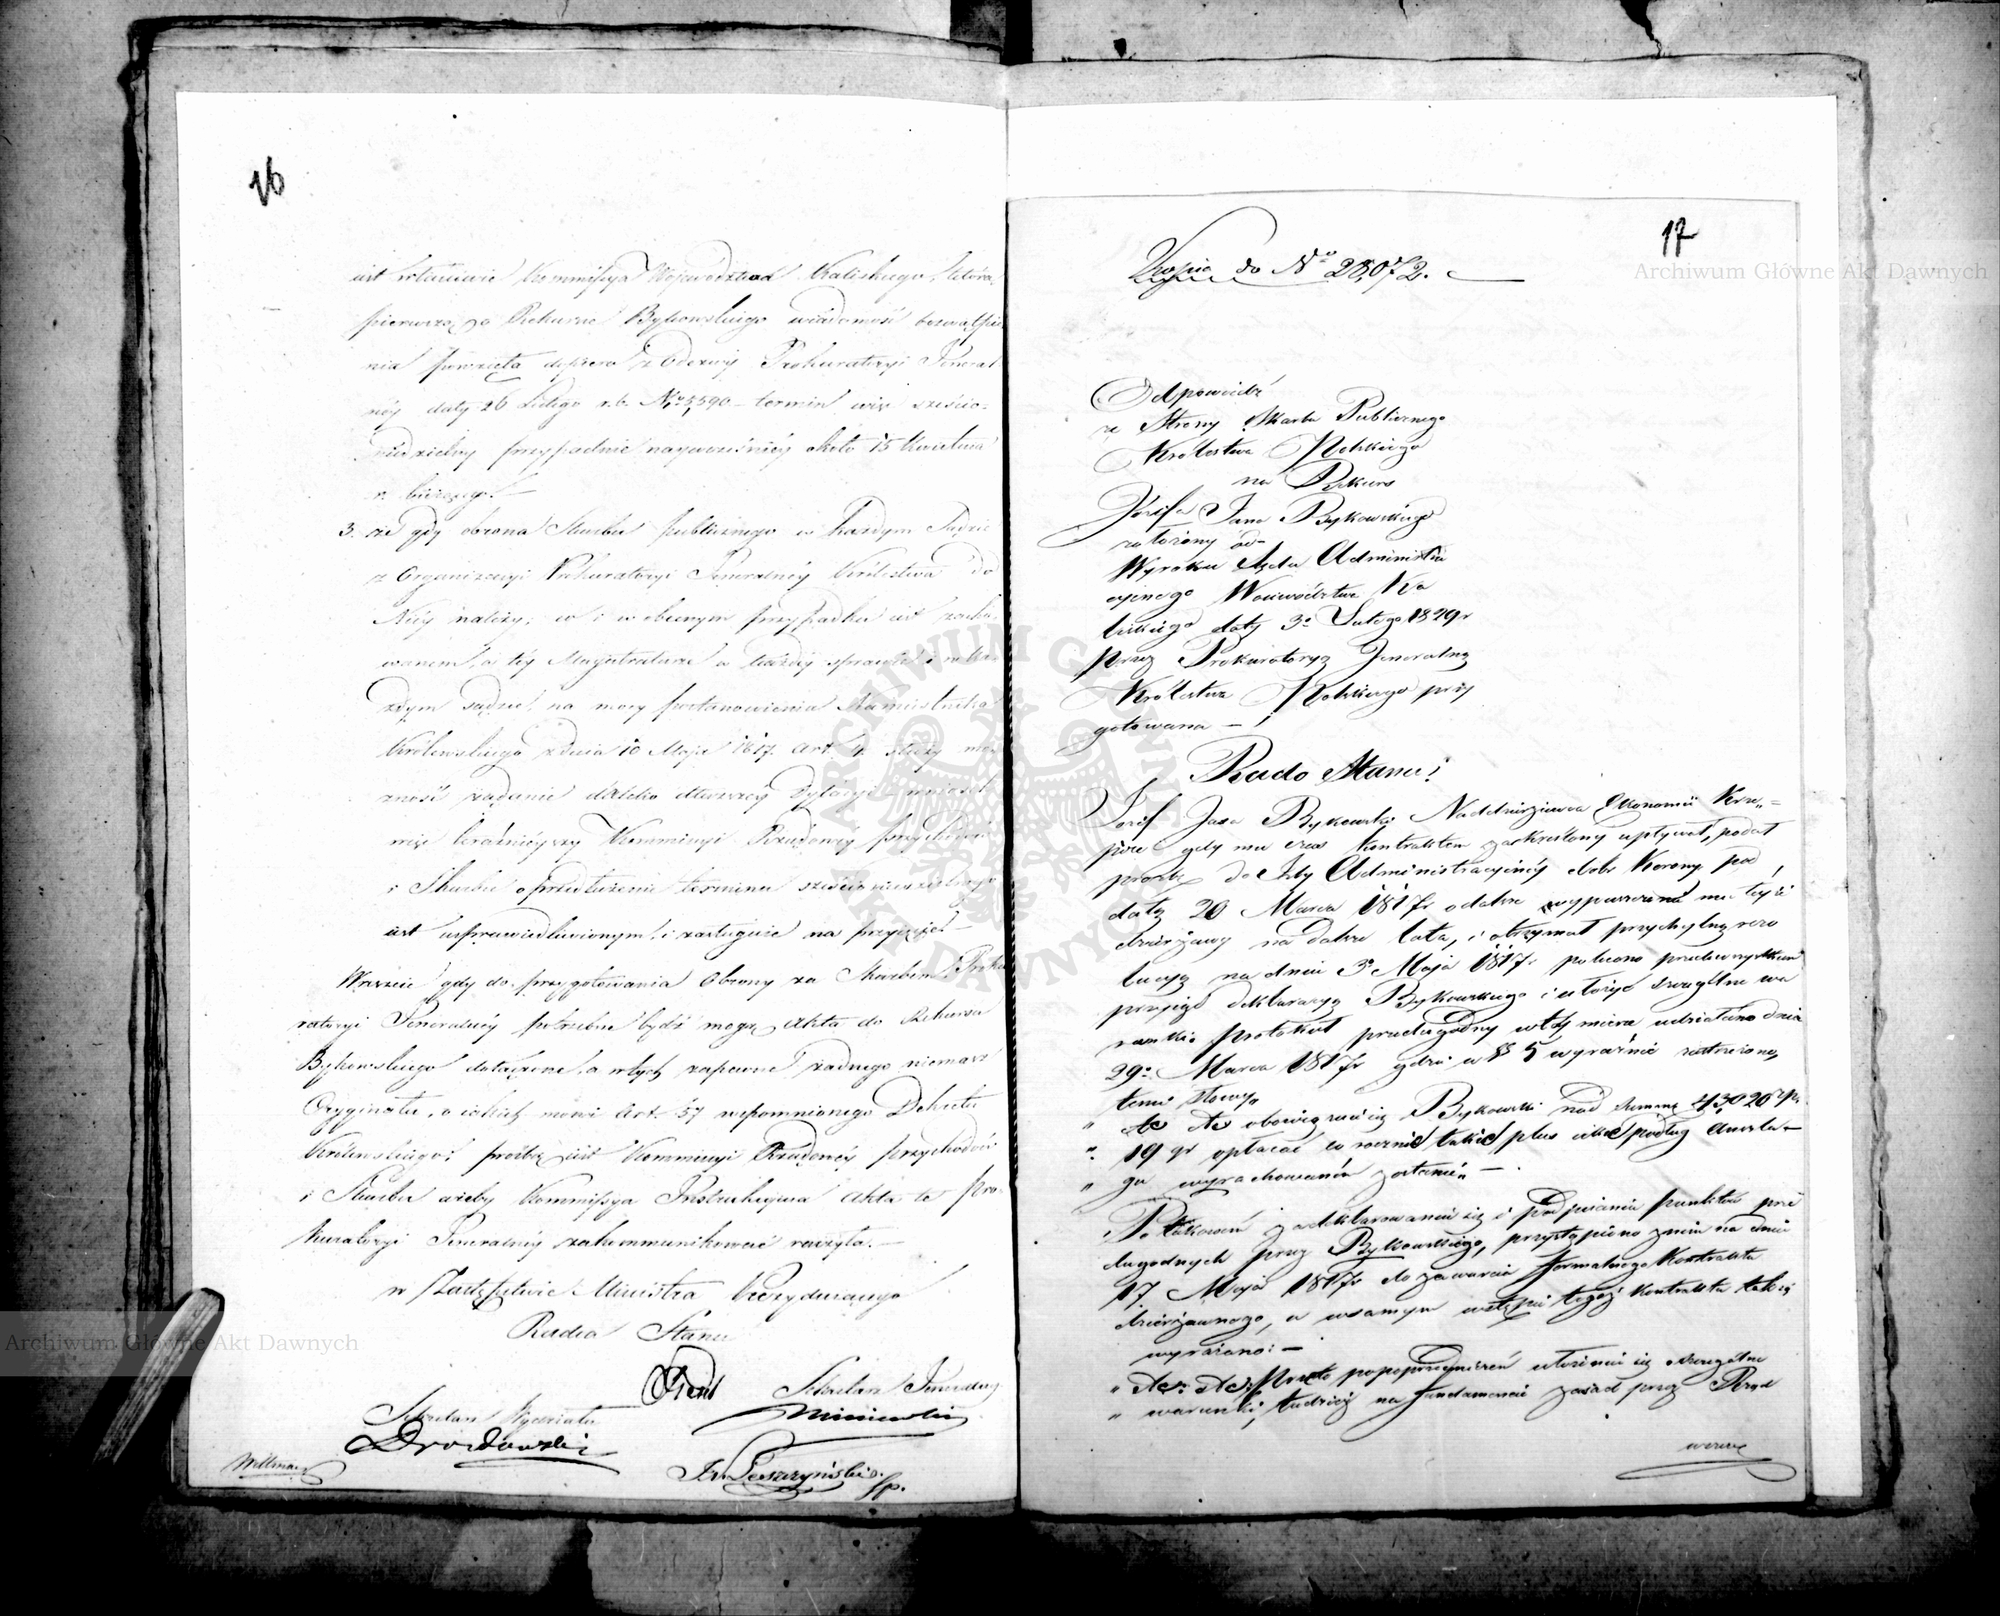 16
jest właściwie Kommissya Województwa Kaliskiego, która
pierwszą o Rekursie Bykowskiego wiadomość bezwątpie
nia powzięła dopiero z Odezwy Prokuratoryi Jeneral
néy daty 26 Lutego r. b. No 3,590 – termin więc sześcio-
niedzielny przypadnie naywcześniéy około 15 Kwietnia
r. bieżącego. –
3. że gdy obrona Skarbu publicznego w każdym Sądzie
z Organizacyi Prokuratoryi Jeneralnéy Królestwa do
Niéy należy; w i w obecnym przypadku jest zacho-
waném, a téy Magistraturze w każdéy sprawie i w ka-
żdym sądzie, na mocy postanowienia Namiestnika
Królewskiego z dnia 10 Maja 1817. art. 4. służy mo-
żność żądania daleko dłuższéy Dylacyi – wniosek
więc teraźnieyszy Kommissyi Rządowéy Przychodów
i Skarbu o przedłużenie terminu sześcioniedzielnego
jest usprawiedliwionym, i zasługuje na przyjęcie. –
Wreszcie gdy do przygotowania Obrony za Skarbem, Proku
ratoryi Jeneralnéy potrzebne bydź mogą Akta do Rekursu
Bykowskiego dołączone, a w tych zapewne żadnego niemasz
Oryginału, o jakich mówi Art. 57 wspomnionego Dekretu
Królewskiego; prośbą jest Kommissyi Rządowéy Przychodów
i Skarbu ażeby Kommissya Instrukcyjna Akta te Pro-
kuratoryi Jeneralnéy zakommunikować raczyła. –
w Zastępstwie Ministra Prezydującego
Radca Stanu
Sekretarz Jeneralny
Sekretarz Wydziału
Drozdowski
17
Kopia do No 28,072.
Odpowiedź
ze Strony Skarbu Publicznego
Królestwa Polskiego
na Rekurs
Józefa Jana Bykowskiego
założony od
Wyroku Sądu Administra
cyjnego Województwa Ka
liskiego daty 3o Lutego 1829 r
przez Prokuratoryą Jeneralną
Królestwa Polskiego przy
gotowana – !
Rado Stanu!
Józef Jan Bykowski Naddzierżawca Ekonomii Krze„=
pice gdy mu czas Kontraktem zakreślony upływał, podał
prośbę do Izby Administracyjnéy dóbr Korony pod
datą 20 Marca 1817 r o dalsze wypuszczenie mu téyże
dzierżawy na dalsze lata, i otrzymał przychylną rezo
lucyą na dniu 3o Maja 1817 r polecono przedewszystkiem
przyjąć deklaracyą Bykowskiego i ułożyć szczególne wa
runki. Protokół przedugodny w téy mierze udziałano dnia
29o Marca 1817 r gdzie w § 5 wyraźnie zastrzeżono
temi słowy„
„ etc etc obowiązuie się Bykowski nad Summę 43,020 złp.
„ 19 gr opłacać corocznie takie plus jakie podług Anszla-
„ gu wyrachowanem zostanie„ –
Po takowem zadeklarowaniu się i podpisaniu punktów prze
dugodnych przez Bykowskiego, przystąpiono z nim na dniu
17 Maja 1817 r do zawarcia formalnego Kontraktu
dzierżawnego, a w samym wstępie tegoż Kontraktu tak się
wyrażono: –
„ etc: etc: Przeto po poprzedniczem ułożeniu się o szczególne
„ warunki, tudzież na fundamencie zasad przez Rząd